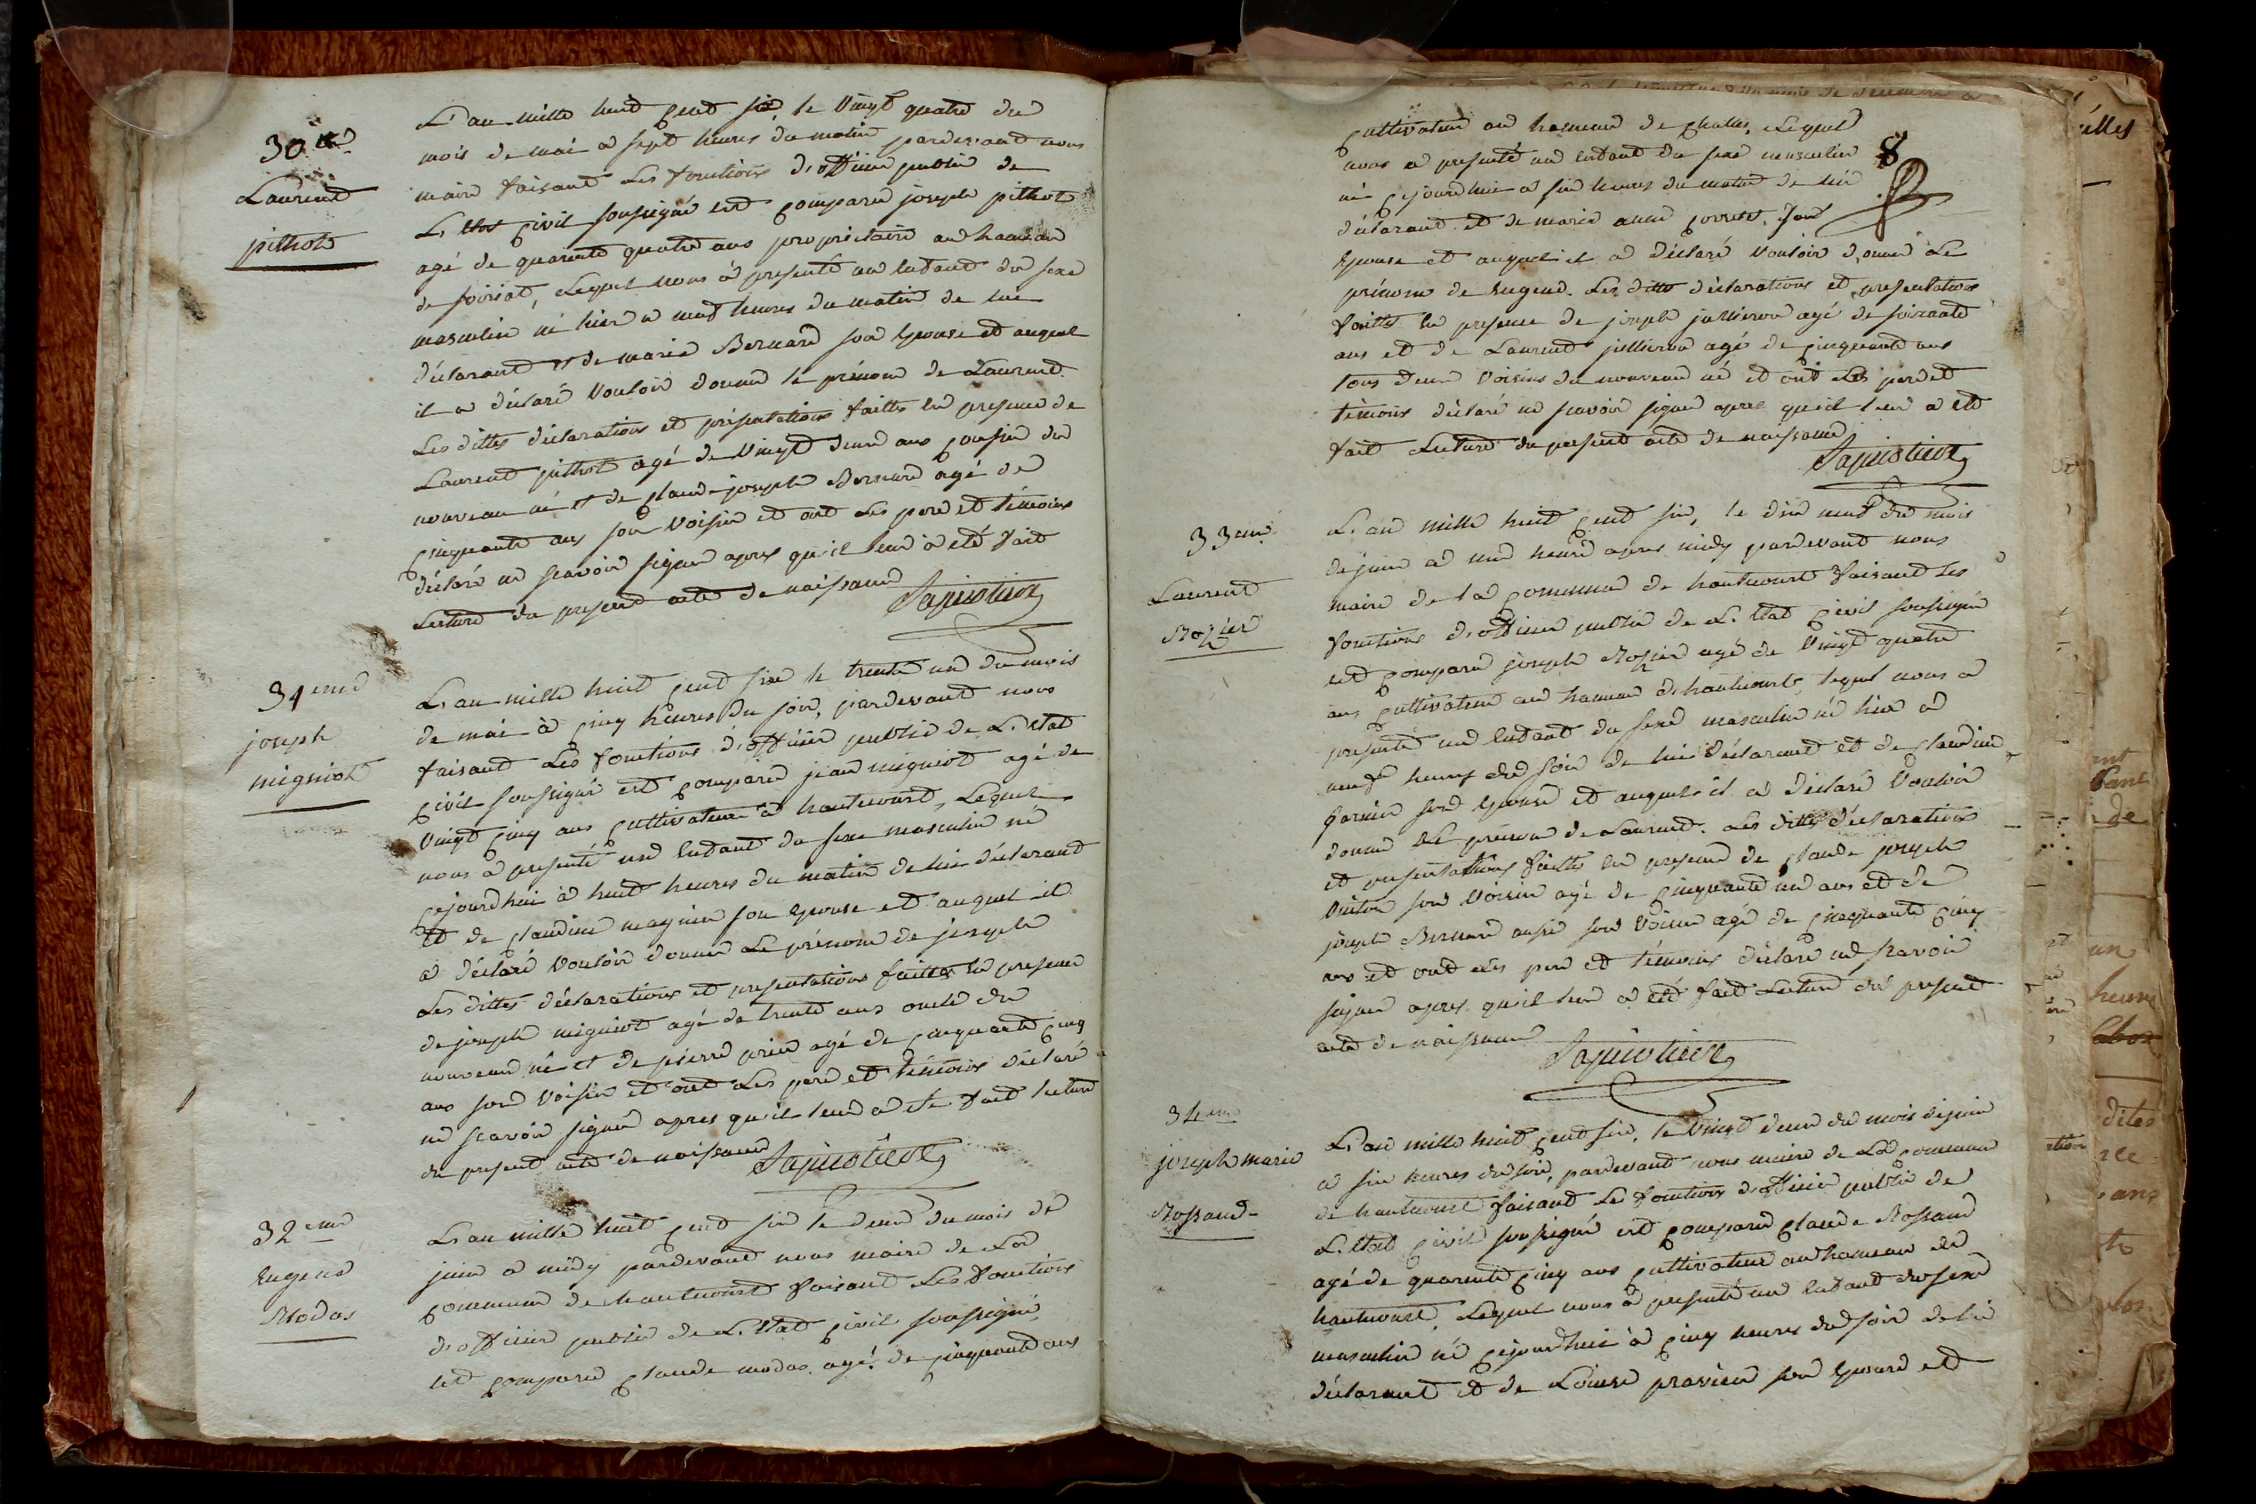 30me
Laurent
pithot
L'an mille huit cent six, le vingt quatre du
mois de mai à sept heures du matin pardevant nous
maire faisant les fonctions d'officier public de
L'etat civil soussigné est comparu joseph pithot
agé de quarente quatre ans propriétaire au hameau
de soiriat, Lequel nous à presenté un enfant du sexe
masculin né hier a neuf heures du matin de lui
déclarant et de marie Bernard son Epouse et auquel
il a déclaré vouloir donner le prénom de Laurent.
Les dittes déclarations et présentations faittes en presence de
Laurent pithot agé de vingt deux ans cousin du
nouveau né et de claude joseph Bernard agé de
cinquante ans son voisin et ont les pere et témoins
déclaré ne scavoir signer apres qu'il leur à eté fait
Lecture du present acte de naissance
31eme
joseph
migniot
L'an mille huit cent six le trente un du mois
de mai à cinq heures du soir, pardevant nous
faisant les fonctions d'officier public de L'etat
civil soussigné est comparu jean migniot agé de
vingt cinq ans cultivateur à hautecourt, Lequel
nous à presenté un enfant du sexe masculin né
cejourdhui à huit heures du matin de lui déclarant
et de claudine magnin son epouse et auquel il
a déclaré vouloir donner Le prénom de joseph
Les dittes déclarations et presentations faittes en presence
de joseph migniot agé de trente ans oncle du
nouveau né et de pierre agé de cinquante cinq
ans son voisin et ont Les pere et témoins déclaré
ne scavoir signer apres qu'il leur à eté fait lecture
du present acte de naissance
32eme
Eugene
Modas
L'an mille huit cent six le deux du mois de
juin a midy pardevant nous maire de La
commune de hautecourt faisant Les fonctions
d'officier public de L'etat civil soussigné,
est comparu claude modas agé de cinquante ans
8
cultivateur au hameau de challes, Lequel
nous a presenté un enfant du sexe masculin
né cejourdhui a six heures du matin de lui
déclarant et de marie anne son
Epouse et auquel il a déclaré vouloir donner Le
prénom de Eugene. Les dittes déclarations et presentations
faittes en presence de joseph agé de soixante
ans et de Laurent agé de cinquante ans
tous deux voisins du nouveau né et ont Les pere et
témoins déclaré ne scavoir signer apres qu'il leur a eté
fait Lecture du present acte de naissance
33eme
Laurent
Rozier
L'an mille huit cent six, le dix neuf du mois
de juin à une heure apres midy pardevant nous
maire de la commune de hautecourt faisant Les
fonctions d'officier public de L'etat civil soussigné
est comparu joseph Rozier agé de vingt quatre
ans cultivateur au hameau d'hautecourt, lequel nous a
presenté un enfant du sexe masculin né hier à
neuf heures du soir de lui déclarant et de claudine
son Epouse et auquel il a déclaré vouloir
donner Le prénom de Laurent. Les dittes déclarations
et presentations faittes en presence de claude joseph
son voisin agé de cinquante un ans et de
joseph Bernard aussi son voisin agé de cinquante cinq
ans et ont les pere et témoins déclaré ne scavoir
signer apres qu'il leur a eté fait Lecture du present
acte de naissance
34eme
joseph marie
Rossand
L'an mille huit cent six, le vingt deux du mois de juin
à six heures du soir, pardevant nous maire de La commune
de hautecourt faisant Les fonctions d'officier public de
L'etat civil soussigné est comparu claude Rossand
agé de quarente cinq ans cultivateur au hameau de
hautecourt, Lequel nous à presenté un enfant du sexe
masculin né cejourdhui à cinq heures du soir de lui
déclarant et de Louise son Epouse et